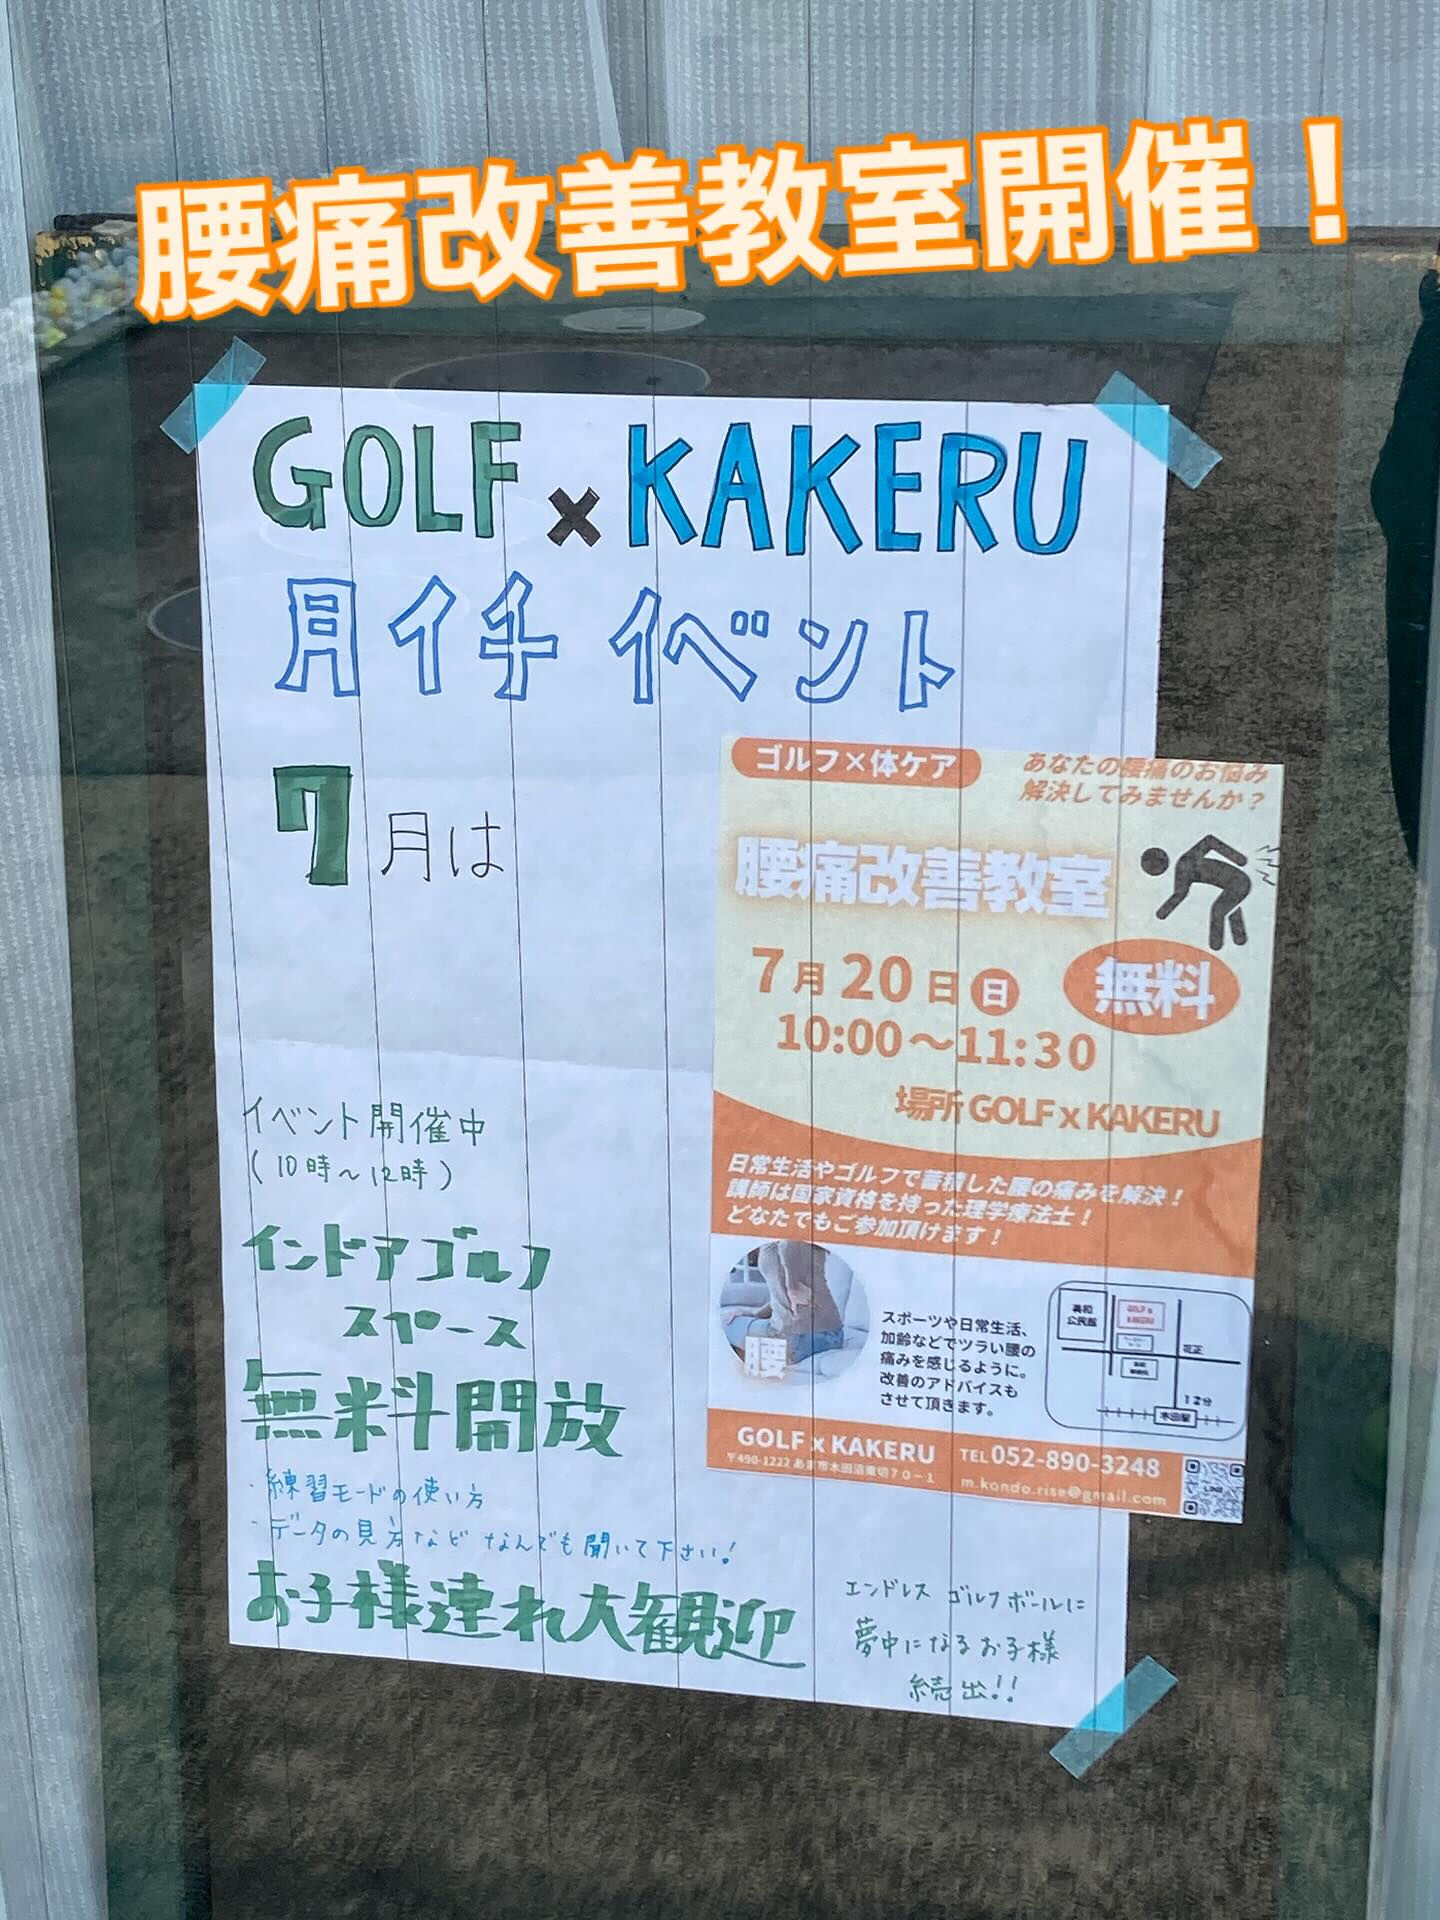 腰痛改善教室開催！
GOLF × KAKERU
月イチ イベント
7月は
ゴルフ×体ケア
あなたの腰痛のお悩み
解決してみませんか？
腰痛改善教室
7月20日日
無料
10:00〜11:30
場所 GOLF x KAKERU
日常生活やゴルフで蓄積した腰の痛みを解決！
講師は国家資格を持った理学療法士！
どなたでもご参加頂けます！
腰
スポーツや日常生活、
加齢などでツラい腰の
痛みを感じるように。
改善のアドバイスも
させて頂きます。
公民館
GOLF x
KAKERU
12分
木田駅
GOLF x KAKERU
〒490-1222 あま市木田沼東切70-1
TEL 052-890-3248
m.kondo.rise@gmail.com
イベント開催中
(10時〜12時)
インドアゴルフ
スペース
無料開放
・練習モードの使い方
・データの見方など なんでも聞いて下さい!
お子様連れ大観迎
エンドレス ゴルフボールに
夢中になるお子様
続出!!